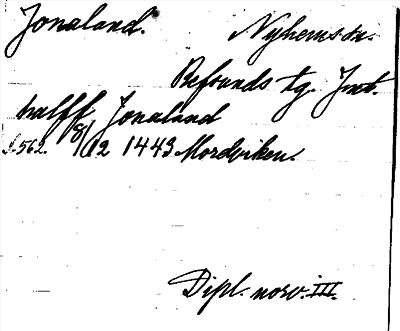 Jonaland. Nyhems sn.
Refsunds tg. Jmt.
halff Jonaland
S. 562. 8/12 1443 Mordviken.
Dipl. norv. III.